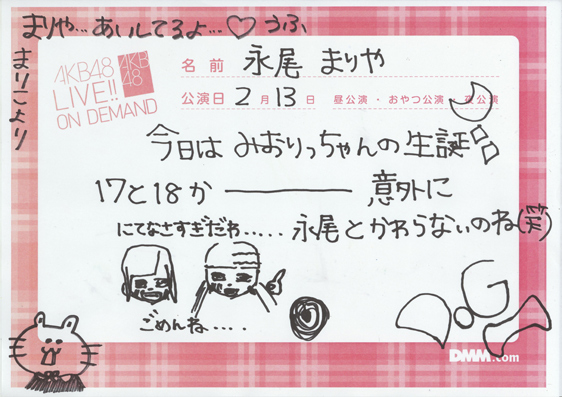 まりや…あいしてるよ…♡うふ
まりこより
AKB48
LIVE!!
ON DEMAND
AKB
48
名前 永尾 まりや
公演日 2月13日 昼公演・おやつ公演・夜公演
今日は みおりっちゃんの生誕
17と18か――― 意外に
にてなさすぎだわ.....永尾とかわらないのね(笑)
ごめんね....
DMM.com